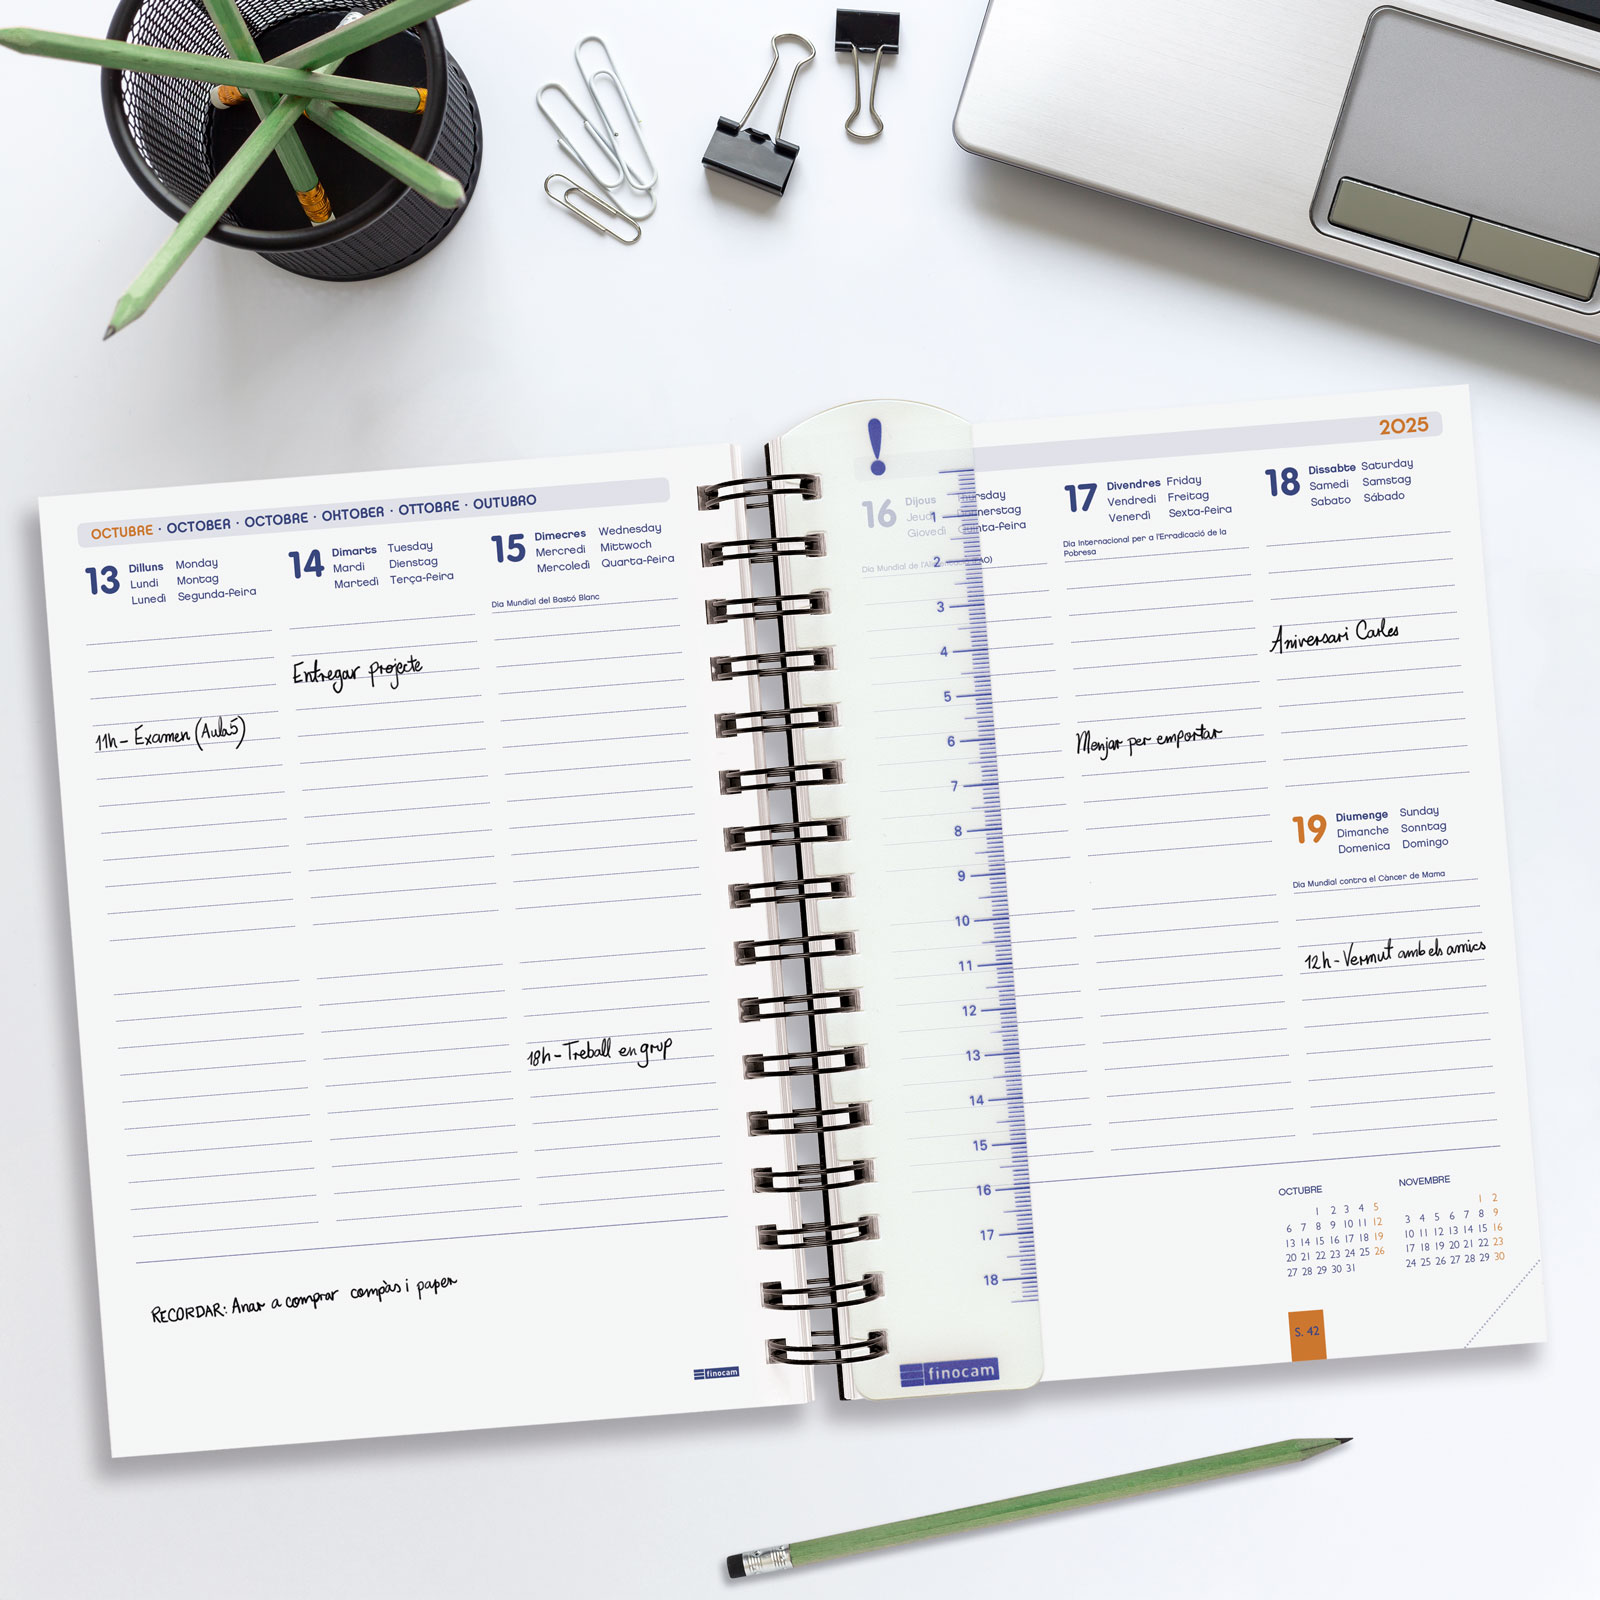 OCTUBRE · OCTOBER · OCTOBRE · OKTOBER · OTTOBRE · OUTUBRO
13 Dilluns Monday
Lundi Montag
Lunedì Segunda-feira
14 Dimarts Tuesday
Mardi Dienstag
Martedì Terça-feira
15 Dimecres Wednesday
Mercredi Mittwoch
Mercoledì Quarta-feira
Dia Mundial del Bastó Blanc
Entregar projecte
11h - Examen (Aula 5)
18h - Treball en grup
RECORDAR: Anar a comprar compàs i paper
finocam
2025
!
16 Dijous Thursday
Jeudi Donnerstag
Giovedì Quinta-feira
Dia Mundial de l'Alimentació (FAO)
1
2
3
4
5
6
7
8
9
10
11
12
13
14
15
16
17
18
finocam
17 Divendres Friday
Vendredi Freitag
Venerdì Sexta-feira
Dia Internacional per a l'Erradicació de la
Pobresa
Menjar per emportar
18 Dissabte Saturday
Samedi Samstag
Sabato Sábado
Aniversari Carles
19 Diumenge Sunday
Dimanche Sonntag
Domenica Domingo
Dia Mundial contra el Càncer de Mama
12h - Vermut amb els amics
OCTUBRE
1 2 3 4 5
6 7 8 9 10 11 12
13 14 15 16 17 18 19
20 21 22 23 24 25 26
27 28 29 30 31
NOVEMBRE
1 2
3 4 5 6 7 8 9
10 11 12 13 14 15 16
17 18 19 20 21 22 23
24 25 26 27 28 29 30
S. 42